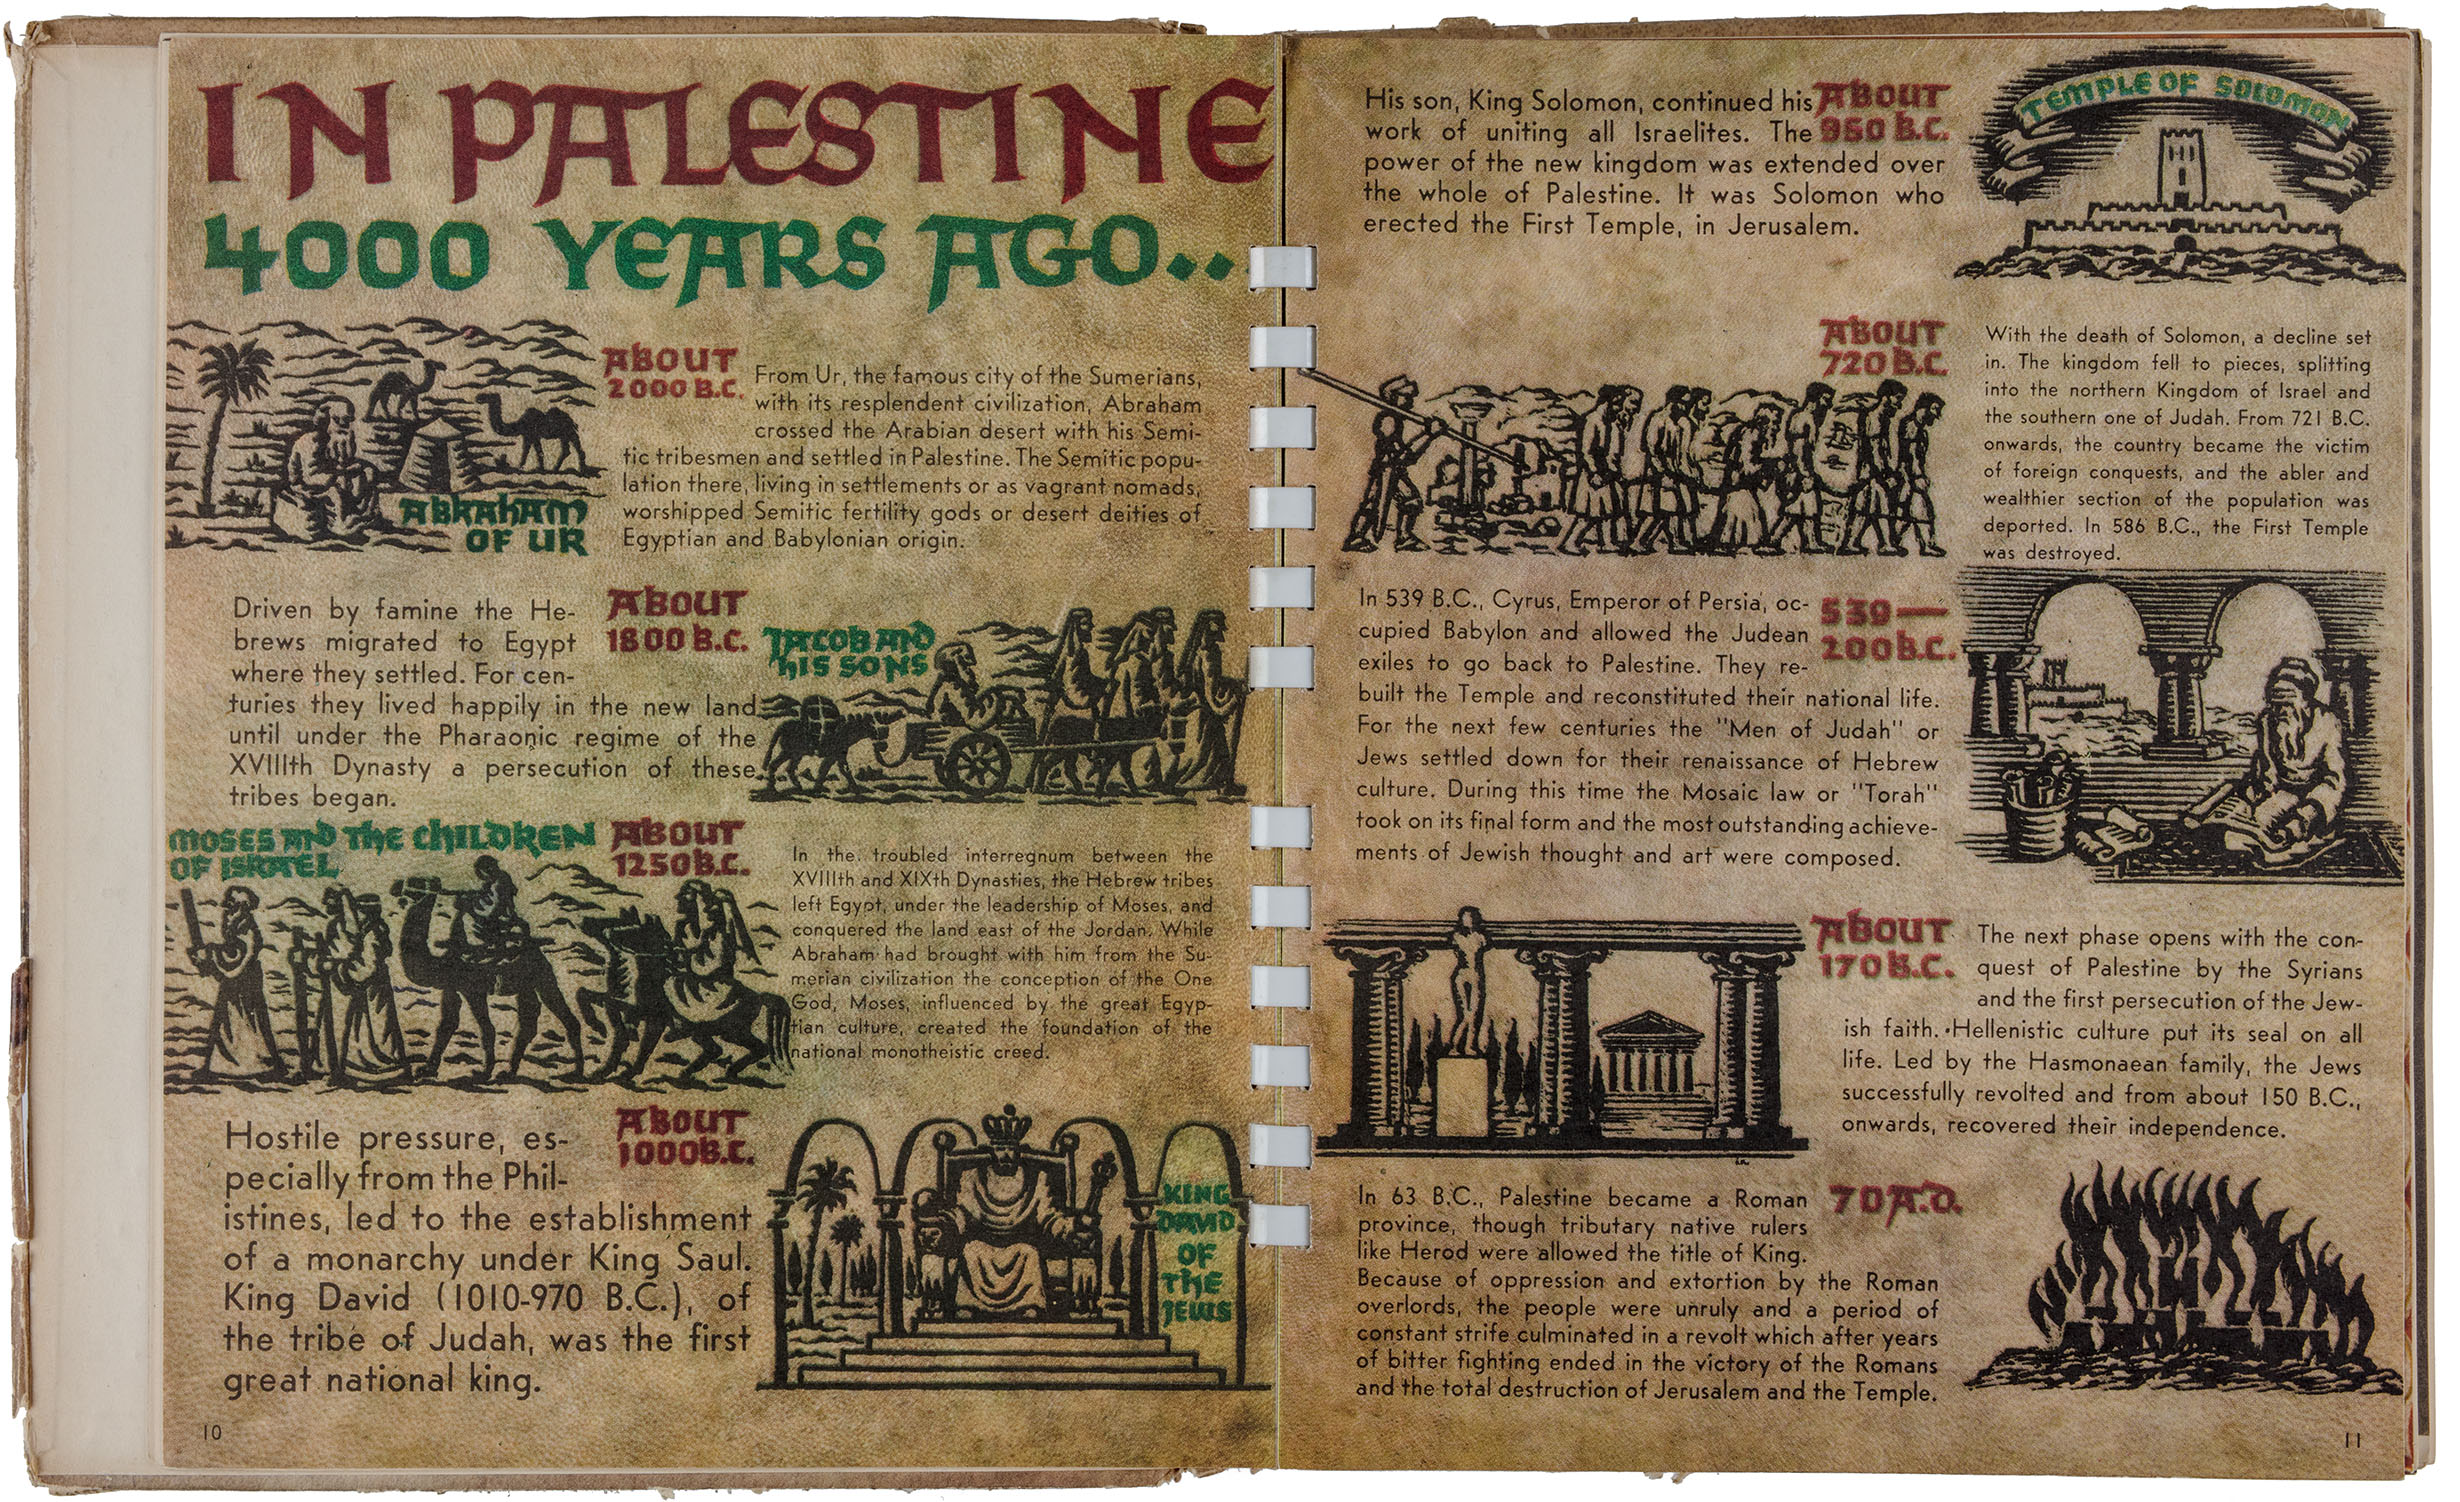 IN PALESTINE
4000 YEARS AGO...
ABOUT
2000 B.C.
From Ur, the famous city of the Sumerians,
with its resplendent civilization, Abraham
crossed the Arabian desert with his Semi-
tic tribesmen and settled in Palestine. The Semitic popu-
lation there, living in settlements or as vagrant nomads,
worshipped Semitic fertility gods or desert deities of
Egyptian and Babylonian origin.
ABRAHAM
OF UR
Driven by famine the He-
brews migrated to Egypt
where they settled. For cen-
turies they lived happily in the new land
until under the Pharaonic regime of the
XVIIIth Dynasty a persecution of these
tribes began.
ABOUT
1800 B.C.
JACOB AND
HIS SONS
MOSES AND THE CHILDREN
OF ISRAEL
ABOUT
1250 B.C.
In the troubled interregnum between the
XVIIIth and XIXth Dynasties, the Hebrew tribes
left Egypt, under the leadership of Moses, and
conquered the land east of the Jordan. While
Abraham had brought with him from the Su-
merian civilization the conception of the One
God, Moses, influenced by the great Egyp-
tian culture, created the foundation of the
national monotheistic creed.
Hostile pressure, es-
pecially from the Phil-
istines, led to the establishment
of a monarchy under King Saul.
King David (1010-970 B.C.), of
the tribe of Judah, was the first
great national king.
ABOUT
1000 B.C.
KING
DAVID
OF
THE
JEWS
10
His son, King Solomon, continued his
work of uniting all Israelites. The
power of the new kingdom was extended over
the whole of Palestine. It was Solomon who
erected the First Temple, in Jerusalem.
ABOUT
950 B.C.
TEMPLE OF SOLOMON
ABOUT
720 B.C.
With the death of Solomon, a decline set
in. The kingdom fell to pieces, splitting
into the northern Kingdom of Israel and
the southern one of Judah. From 721 B.C.
onwards, the country became the victim
of foreign conquests, and the abler and
wealthier section of the population was
deported. In 586 B.C., the First Temple
was destroyed.
In 539 B.C., Cyrus, Emperor of Persia, oc-
cupied Babylon and allowed the Judean
exiles to go back to Palestine. They re-
built the Temple and reconstituted their national life.
For the next few centuries the "Men of Judah" or
Jews settled down for their renaissance of Hebrew
culture. During this time the Mosaic law or "Torah"
took on its final form and the most outstanding achieve-
ments of Jewish thought and art were composed.
539—
200 B.C.
ABOUT
170 B.C.
The next phase opens with the con-
quest of Palestine by the Syrians
and the first persecution of the Jew-
ish faith. Hellenistic culture put its seal on all
life. Led by the Hasmonaean family, the Jews
successfully revolted and from about 150 B.C.,
onwards, recovered their independence.
In 63 B.C., Palestine became a Roman
province, though tributary native rulers
like Herod were allowed the title of King.
Because of oppression and extortion by the Roman
overlords, the people were unruly and a period of
constant strife culminated in a revolt which after years
of bitter fighting ended in the victory of the Romans
and the total destruction of Jerusalem and the Temple.
70 A.D.
11